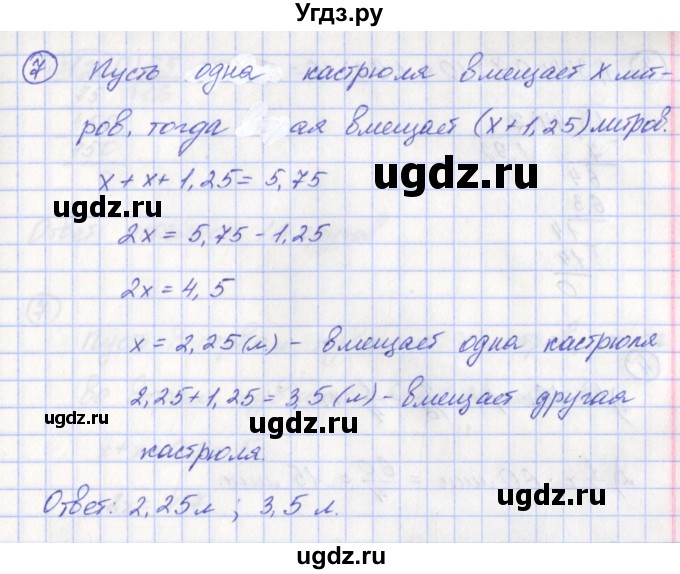 Угдз.ру
7 Пусть одна кастрюля вмещает x лит-
ров, тогда ая вмещает (x+1,25) литров.
ugdz.ru
x + x + 1,25 = 5,75
ugdz.ru
ugdz.ru
2x = 5,75 - 1,25
2x = 4,5
ugdz.ru
x = 2,25 (л) - вмещает одна кастрюля
2,25 + 1,25 = 3,5 (л) - вмещает другая
ugdz.ru
ugdz.ru
кастрюля.
Ответ: 2,25 л ; 3,5 л.
ugdz.ru
ugdz.ru